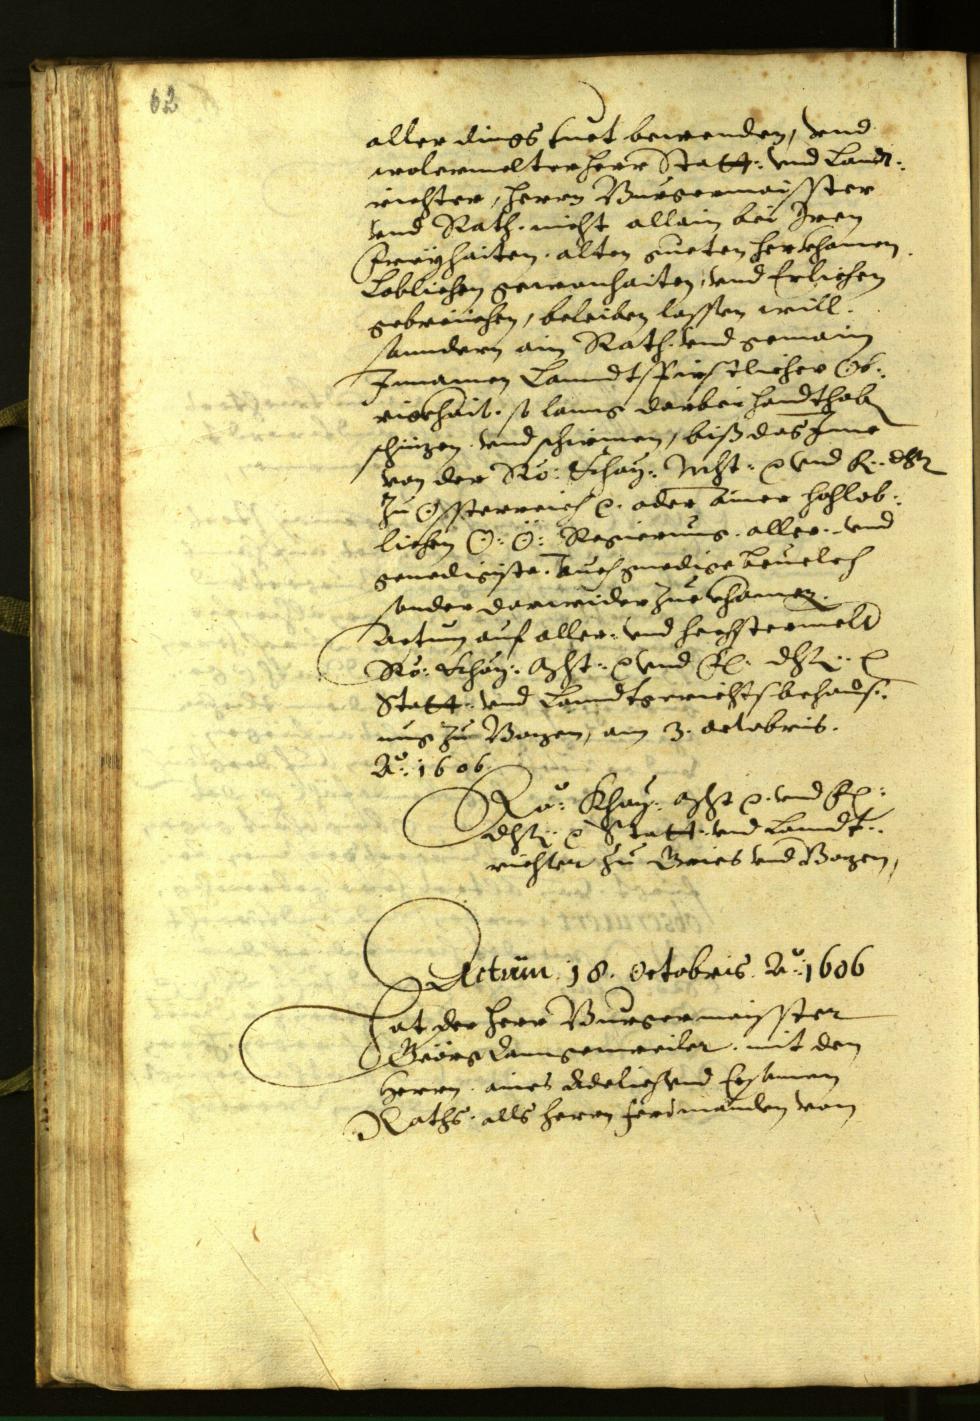 62
aller dings guet bewenden, vnd
wolermelter herr Statt- vnd Landt-
richter, herrn Burgermaisster
vnd Rath. nicht allain bei Iren
Freÿhaiten. alten gueten herkhamen
Loblichen gewonhaiten, vnd Erlichen
gebreüchen, beleiben lassen will.
sonndern ain Rath. vnd gemain
Innamen Lanndtsfürstlicher Ob-
rigkhait. so lanng darbei handthab
schüzen. vnd schirmen, biß das Ime
von der Rö: Khaÿ: Mht: vnd Fr: dht
zu Össterreich oder ainer hochlob-
lichen O: Ö: Regierung. aller- vnd
genedigiste. auch gnedige beuelch
sonder darwider zuekhamen.
Actum auf aller- vnd hochstermelt
Rö: Khaÿ: Mht: vnd Fr: dht:
Statt- vnd Lanndtgerichtsbehaus-
ung zu Bozen, am 3. octobris.
Ao: 1606
Rö: Khaÿ: Mht vnd Fr:
dht: Statt- vnd Lanndt-
richter zu Gries vnd Bozen,
Actum 18. Octobris. Ao: 1606
Hat der herr Burgermaisster
Geörg mit den
Herrn. aines Adelich vnd Ersamen
Raths. alls herrn Ferdinanden von